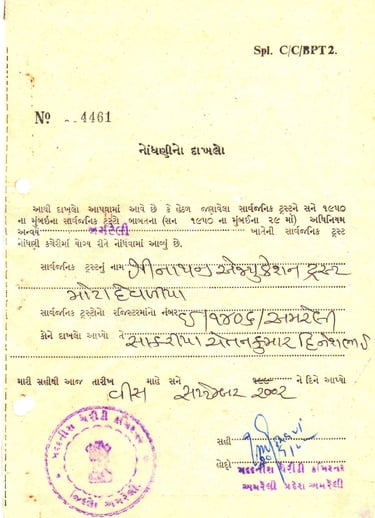 Spl. C/C/BPT2.
Nº 4461
નોંધણીનો દાખલો
આથી દાખલો આપવામાં આવે છે કે હેઠળ જણાવેલા સાર્વજનિક ટ્રસ્ટને સને ૧૯૫૦
ના મુંબઈના સાર્વજનિક ટ્રસ્ટો બાબતના (સન ૧૯૫૦ ના મુંબઈના ૨૯ માં) અધિનિયમ
અન્વયે અમરેલી ખાતેની સાર્વજનિક ટ્રસ્ટ
નોંધણી કચેરીમાં યોગ્ય રીતે નોંધવામાં આવ્યું છે.
સાર્વજનિક ટ્રસ્ટનું નામ શ્રીનાથજી એજ્યુકેશન ટ્રસ્ટ
મોટા દેવળીયા
સાર્વજનિક ટ્રસ્ટોના રજિસ્ટરમાંનો નંબર ઈ/૧૪૦૬/અમરેલી
કોને દાખલો આપ્યો તે સાકરીયા ચેતનકુમાર દિનેશભાઈ
મારી સહીથી આજ તારીખ માહે સને ના દિને આપ્યો
વીસ સપ્ટેમ્બર ૨૦૦૨
સહી
હોદ્દો મદદનીશ ચેરીટી કમિશનર
અમરેલી પ્રદેશ અમરેલી
મદદનીશ ચેરીટી કમિશનર
જિલ્લા અમરેલી